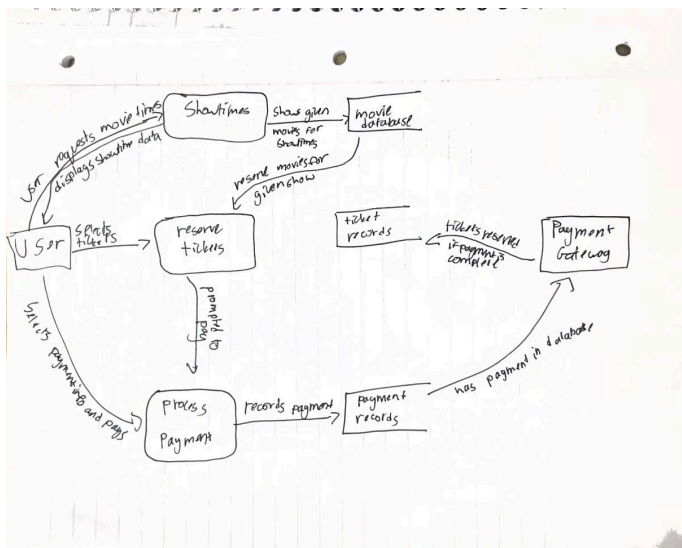 Showtimes
user requests movie times
displays showtime data
Shows given
movies for
Showtimes
movie
database
reserve movies for
given show
User
selects
tickets
reserve
tickets
ticket
records
tickets reserved
if payment is
complete
Payment
Gateway
prompted to
pay
Selects payment info and pays
Process
Payment
records payment
payment
records
has payment in database